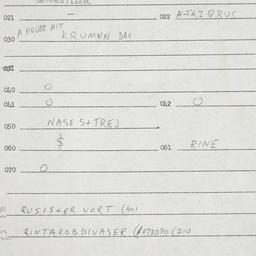 021 — 022
A HOUSE HIT
030 KRUMNN DAX
031
040 O
041 O 042 O
050 NASE S+TREJ
060 $ 061 RINE
070 O
RUSISTER VORT (401
RINTAROBDIVASER (1078070 (210